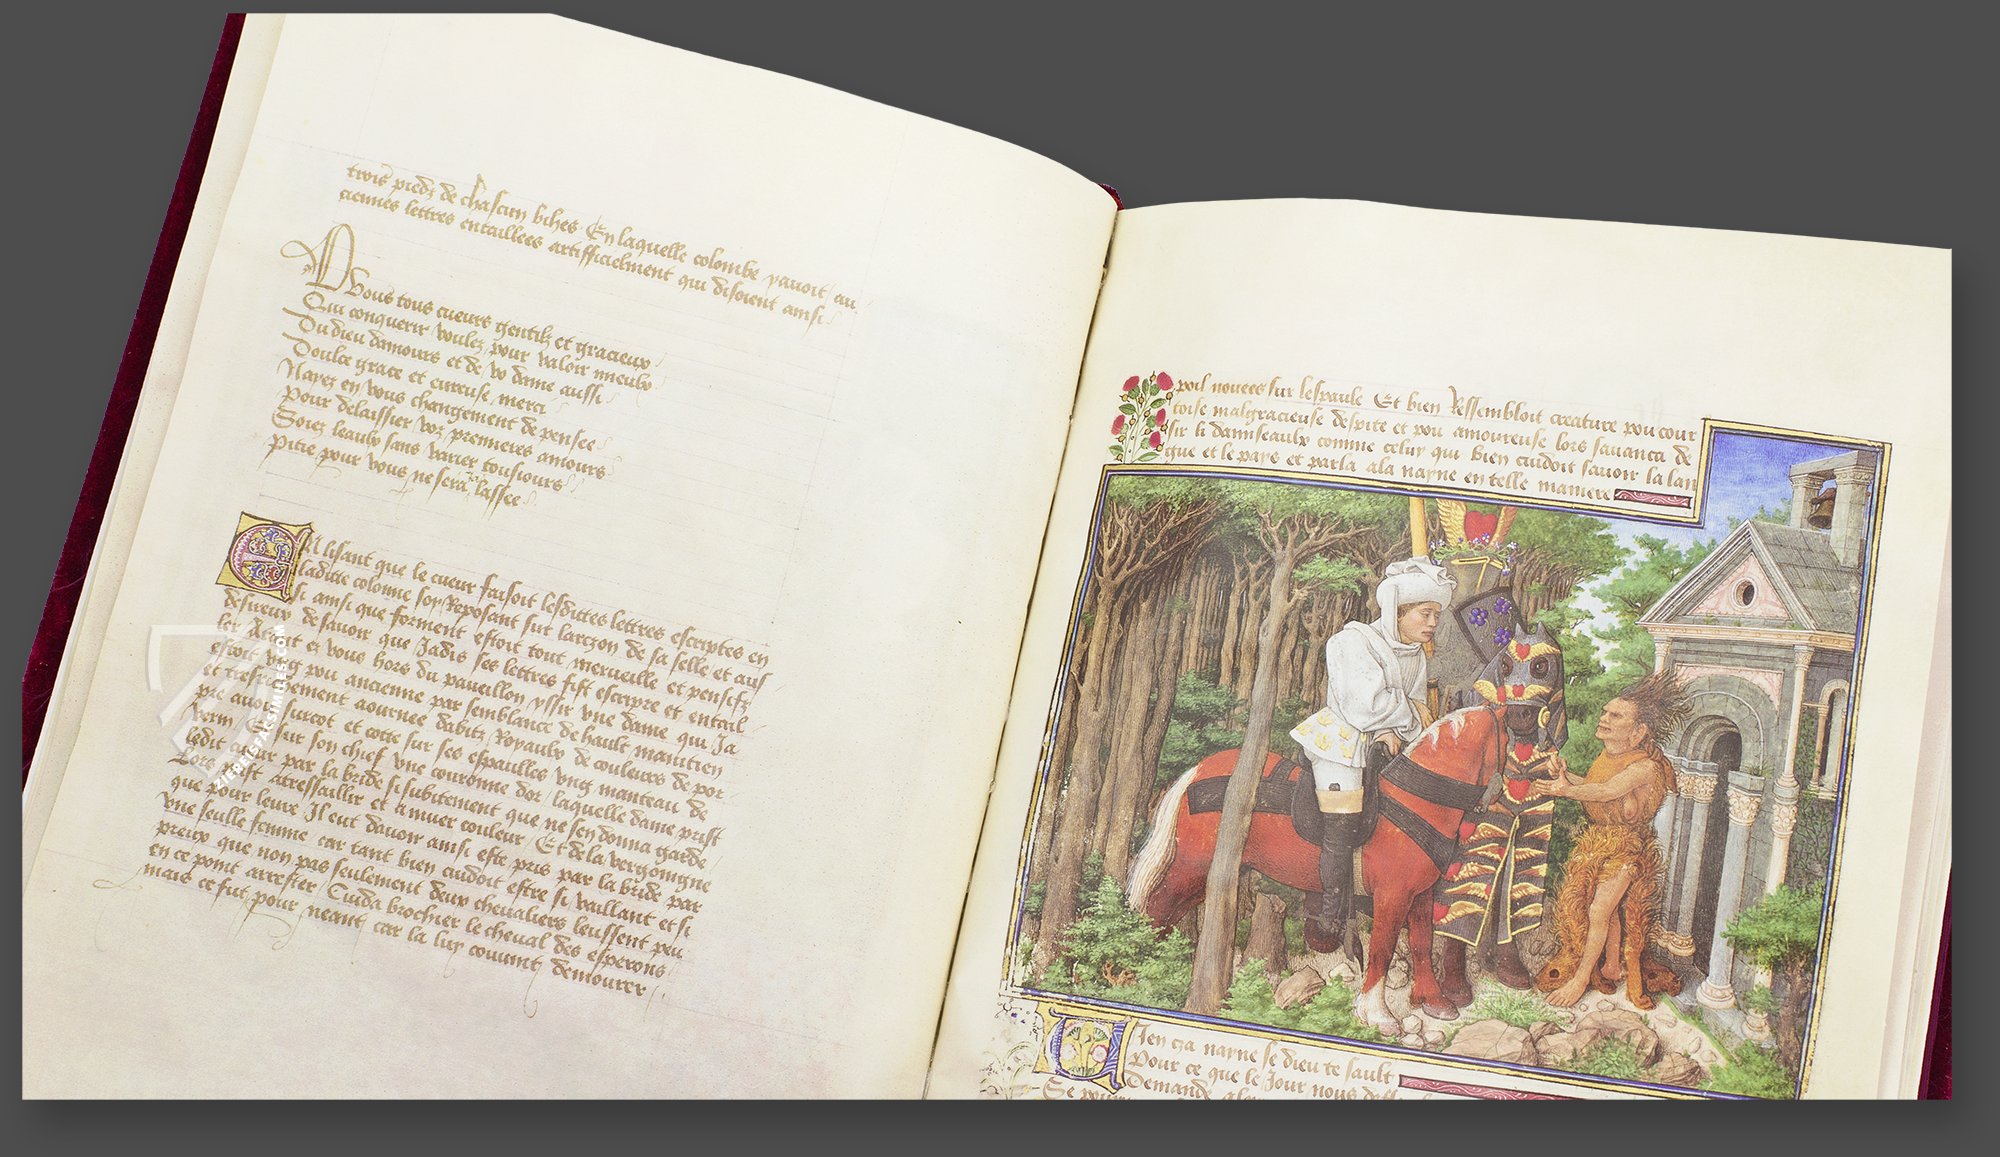 trois piedz de chascun bihes. En laquelle colombe, y avoit, au
ciennes lettres entaillees artifficielment qui disoient ainsi
A Vous tous cueurs gentilz et gracieux
Qui conquerir voulez, pour valoir mieulx
Du dieu damours et de vo dame aussi
Doulce grace et eureuse, merci
Nayez en vous changement de pensee
Pour delaissier voz premieres amours
Soiez leaulx sans varier tousiours
Pitie pour vous ne sera lassee
En lisant que le cueur faisoit lesdittes lettres escriptes en
laditte colonne soy Reposant sur larczon de sa selle et aus
si ainsi que forment estoit tout merveille et pensifz
desireux de savoir que Jadis ses lettres fist escripre et entail
ler Atant et vous hors du paveillon yssir une dame qui Ja
estoit ung pou ancienne par semblance de hault maintien
et aournee dabitz Royaulx de couleurs de por
pre avoit surcot et cotte sur ses espaulles ung manteau de
sur son chief une couronne dor, laquelle dame prist
ledit cueur par la bride si subitement que ne sen donna garde
Lors prist atressaillir et a muer couleur, Et de la vergoingne
que pour leure Il eut davoir ainsi este pris par la bride par
une seulle femme, car tant bien cuidoit estre si vaillant et si
preux que non pas seulement deux chevaliers leussent peu
en ce point arrester, Cuida brochier le cheval des esperons
mais ce fut, pour neant car la luy couvint demourer
ZIEREIS FACSIMILES.COM
poil nouees sur lespaule Et bien Ressembloit creature pou cour
toise malgracieuse despite et pou amoureuse lors savanca de
sir li damiseaulx comme celuy qui bien cuidoit savoir la lan
gue et le pays et parla a la nayne en telle maniere
Vien cza nayne se dieu te sault
Pour ce que le Jour nous deff
Demande
Se